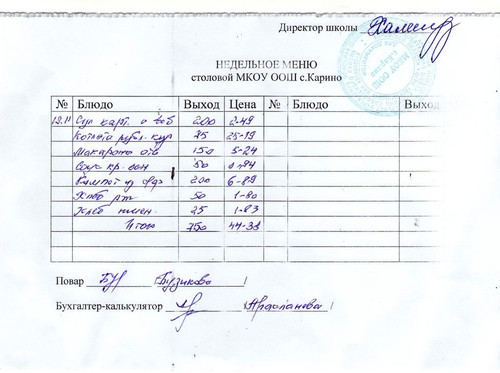 Директор школы
НЕДЕЛЬНОЕ МЕНЮ
столовой МКОУ ООШ с.Карино
№ Блюдо Выход Цена № Блюдо Выход
Суп карт. с 200 2-49
Котлета рубл. кур 25-19
Макароны отв 150 5-24
Соус кр. осн 50
Компот из 200 6-89
Хлеб рж 50 1-80
Хлеб пшен. 25 1-83
Итого 750
Повар / Бузикова /
Бухгалтер-калькулятор / /